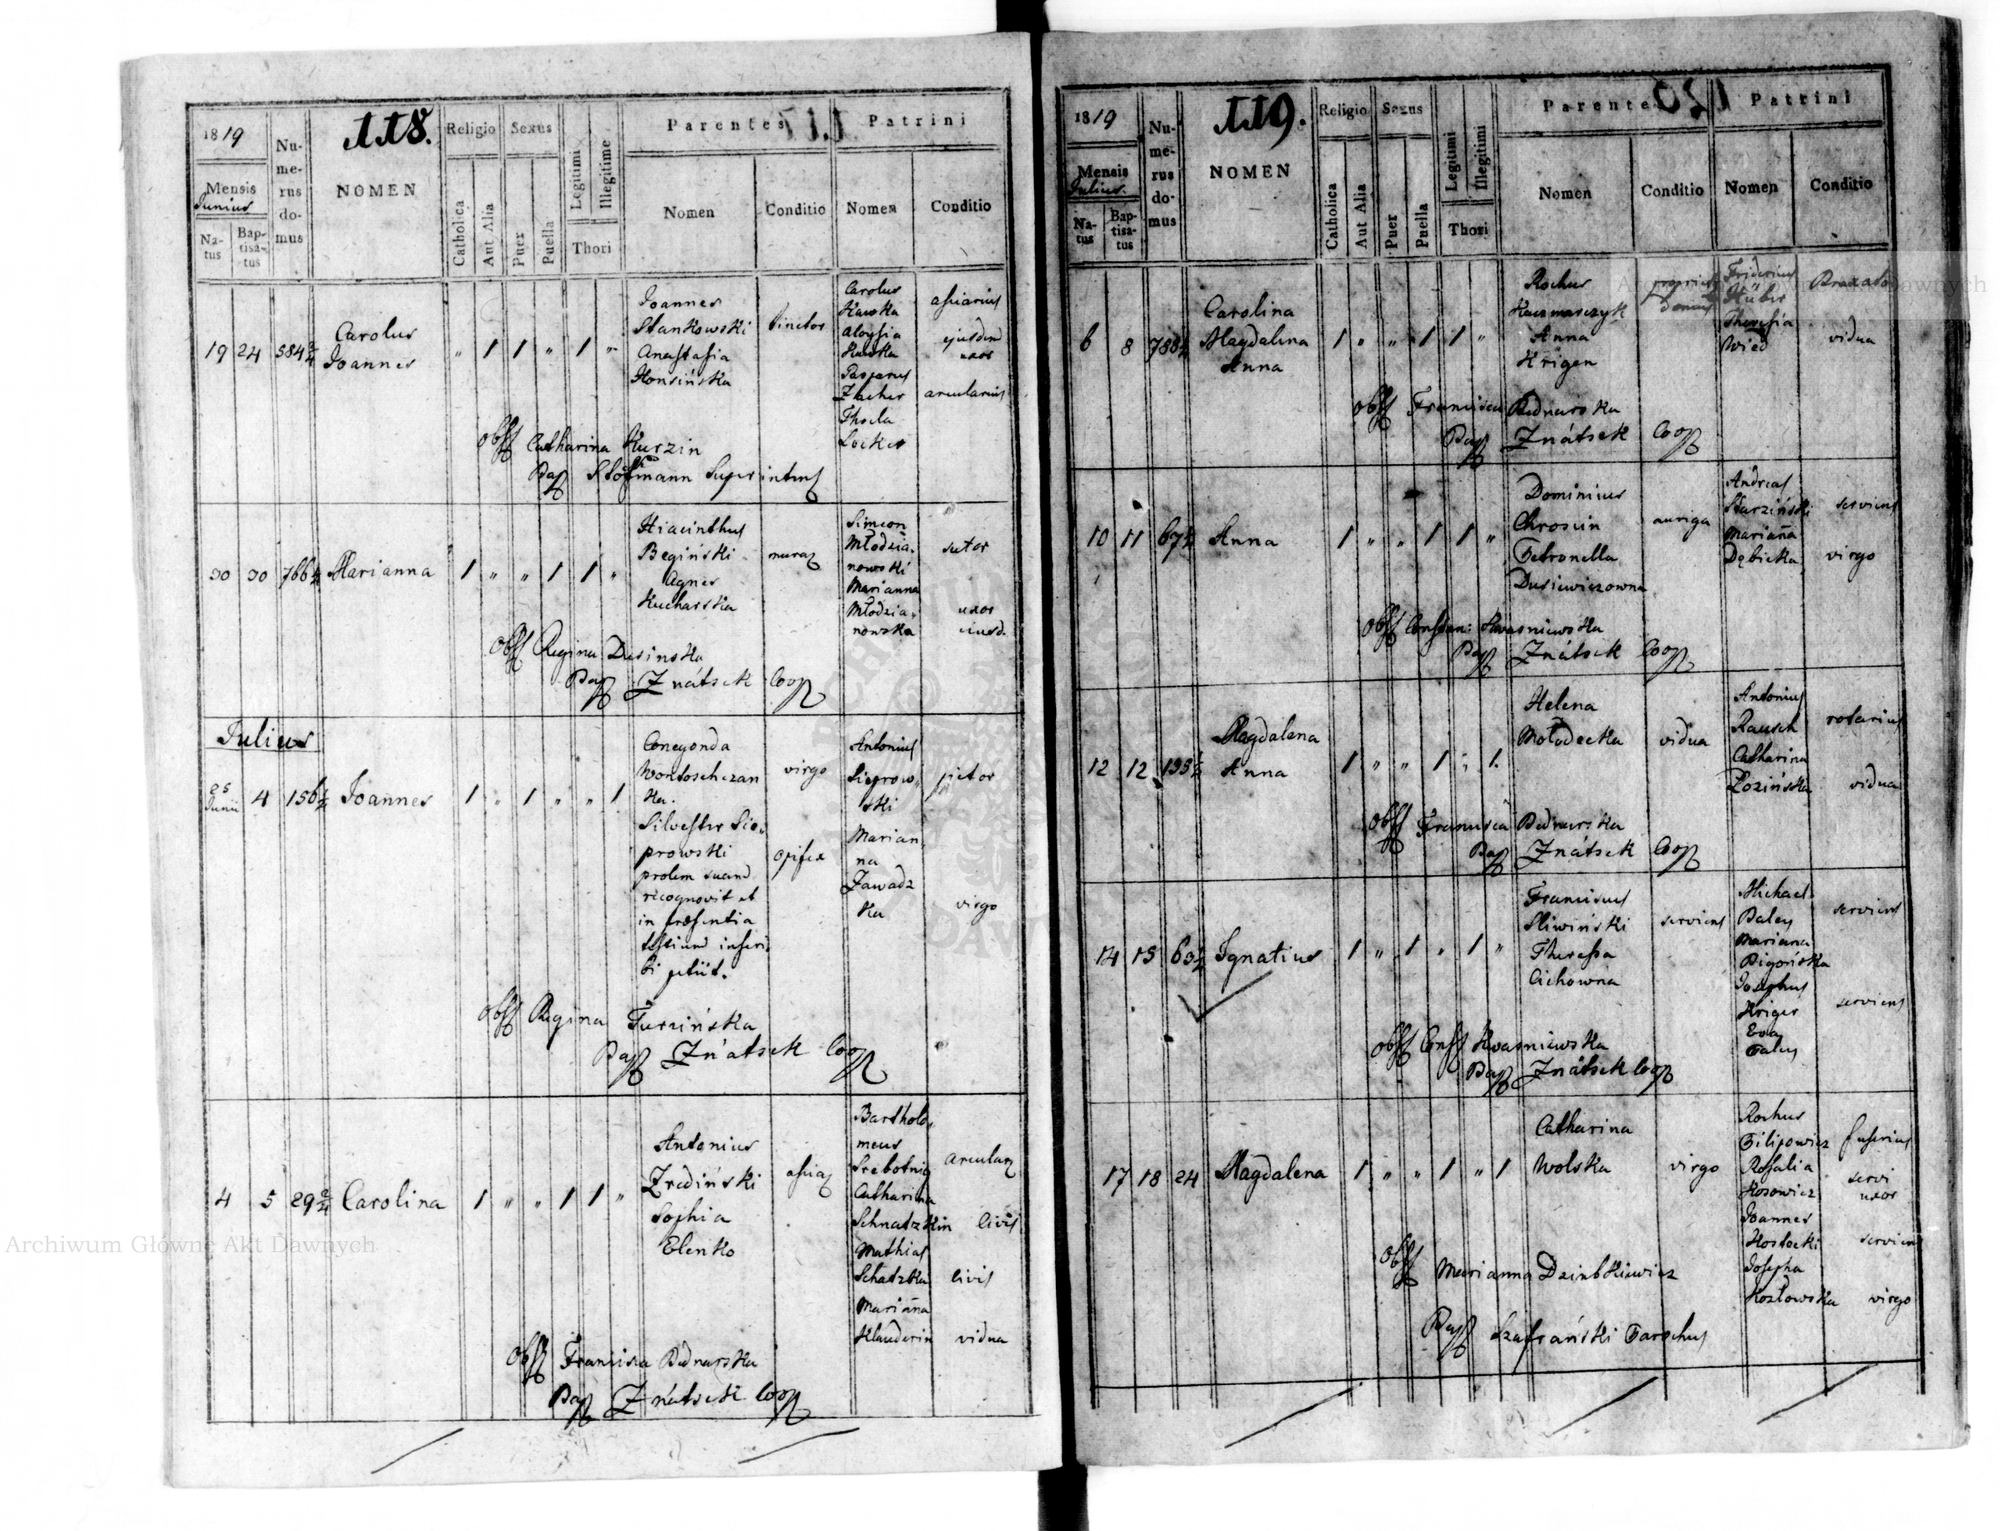 118.
1819
Mensis
Junius
Natus
Baptisatus
Numerus domus
NOMEN
Religio
Catholica
Aut Alia
Sexus
Puer
Puella
Legitimi
Illegitime
Thori
Parentes
Nomen
Conditio
Patrini
Nomen
Conditio
19 24
Carolus
Joannes
" 1 1 " 1 "
Joannes
Stankowski
Anastasia
tinctor
Carolus
Kawka
Aloysia
Kawka
Zacher
Thecla
ejusdem
uxor
arcularius
Obst Catharina Kurzin
Bap
30 30 766
Marianna
1 " " 1 1 "
Hiacinthus
Begiński
Agnes
Kucharska
murar
Simeon
Młodzia-
nowski
Marianna
Młodzia-
nowska
sutor
uxor
eiusd.
Obst Regina
Bap Znátsek Coop
Julius
25
Junii
4 156
Joannes
1 " 1 " " 1
Conegonda
ka.
virgo
Silvester Sie-
prowski
prolem suam
recognovit et
in præsentia
testium inseri-
bi petiit.
opifex
Antonius
Sieprow-
ski
Marian-
na
Zawadz
ka
pictor
virgo
Obst Regina Turzińska
Bap Znátsek Coop
4 5 29
Carolina
1 " " 1 1 "
Antonius
Sophia
Elenko
Bartholo-
meus
Srebotnig
Catharina
Schnatzkin
Mathias
Schatzka
Mariana
Klauderin
arcular
civis
civis
vidua
Obst Francisca Bednarska
Bap Znátsek Coop
119.
1819
Mensis
Julius.
Natus
Baptisatus
Numerus domus
NOMEN
Religio
Catholica
Aut Alia
Sexus
Puer
Puella
Legitimi
Illegitimi
Thori
Parentes
Nomen
Conditio
120
Patrini
Nomen
Conditio
6 8 788
Carolina
Magdalena
Anna
1 " " 1 1 "
Rochus
Kaczmarczyk
Anna
Krigen
Theresia
Wied
vidua
Obst Francisca Bednarska
Bap Znátsek Coop
10 11 67
Anna
1 " " 1 1 "
Dominicus
Chroscin
Petronella
auriga
Andreas
Starziński
Mariana
Dębicka
serviens
virgo
Obst Constan: Kwasniewska
Bap Znátsek Coop
12 12 195
Magdalena
Anna
1 " " 1 " 1
Helena
Mołodecka
vidua
Antonius
Rausch
Catharina
Łozińska
rotarius
vidua
Obst Francisca Bednarska
Bap Znátsek Coop
14 15 60
Ignatius
1 " 1 " 1 "
Franciscus
Sliwiński
Theressa
Cichowna
serviens
Michael
Mariana
Josephus
Kriger
Eva
serviens
serviens
Obst Const Kwasniewska
Bap Znátsek Coop
17 18 24
Magdalena
1 " " 1 " 1
Catharina
Wolska
virgo
Rochus
Filipowicz
Rosalia
Kosowicz
Joannes
Kostecki
Josepha
Kozłowska
servi
uxor
serviens
virgo
Obst Marianna
Bap Szafrański Parochus
Archiwum Główne Akt Dawnych